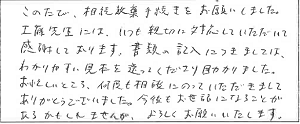 このたび、相続放棄手続きをお願いしました。
工藤先生には、いつも親切に対応していただいて
感謝しております。書類の記入につきましては、
わかりやすい見本を送ってくださり助かりました。
お忙しいところ、何度も相談にのっていただきまして
ありがとうございました。今後もお世話になることが
あるかもしれませんが、よろしくお願いいたします。